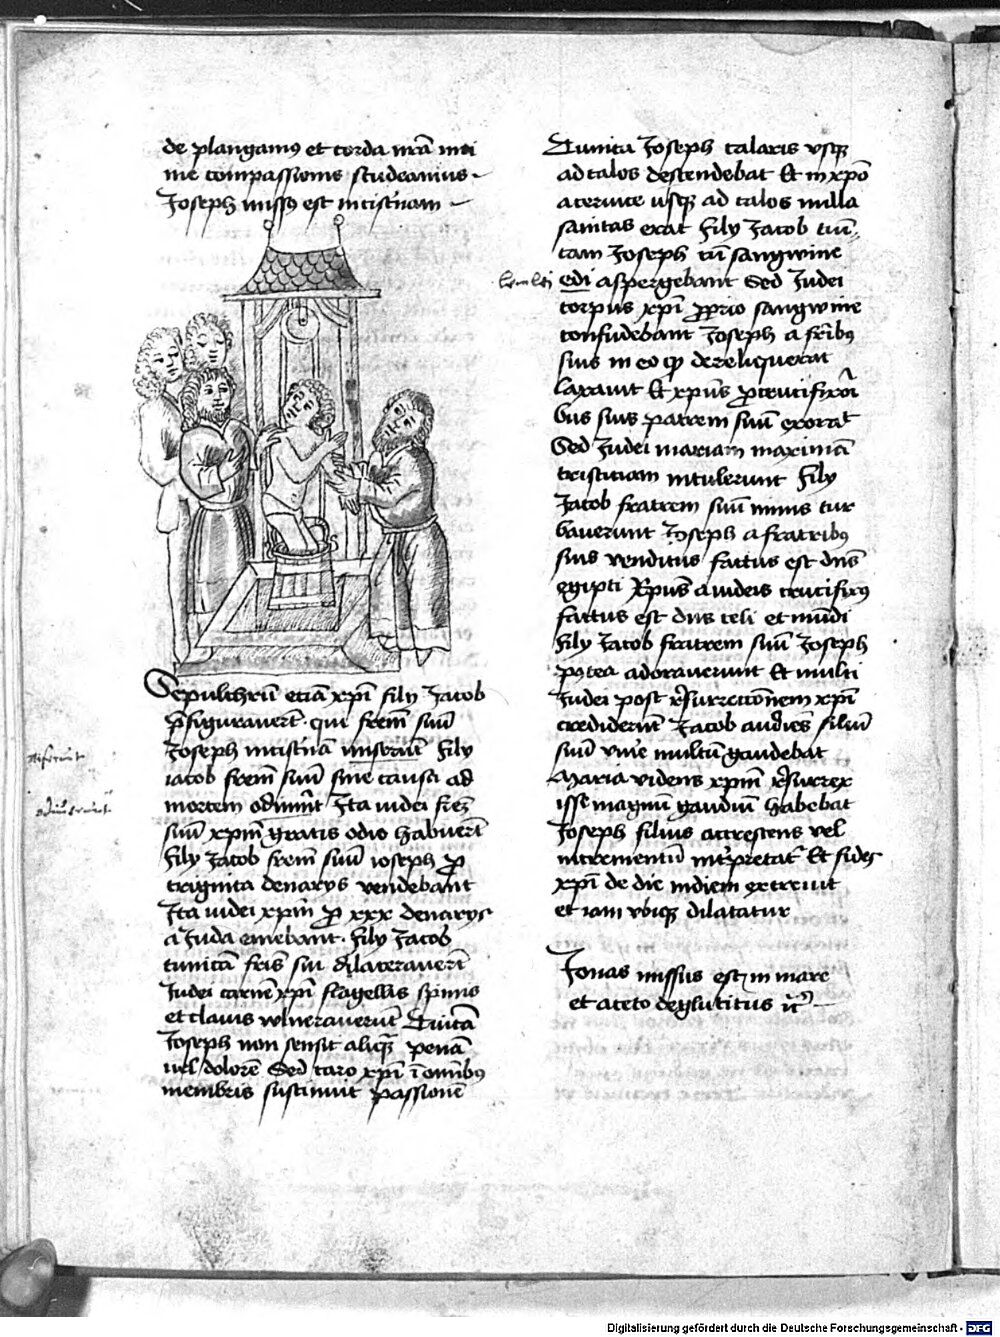 de plangamꝯ et corda nr̄a ma
me compassionis studeamus
Joseph missꝯ est in cist̄nam
Sepulchrū etiā xp̄i filÿ Jacob
p̄figuraver̄t · qui fr̄em suū
Joseph in cist̄nā miserūt filÿ
iacob fr̄em suū sine causa ad
mortem odiūnt Ita iudei fr̄eꝫ
suū xp̄m gratis odio habuer̄t
filÿ Jacob fr̄em suū ioseph ꝓ
triginta denarÿs vendebant
Ita iudei xp̄m ꝓ xxx denarÿs
a Juda emebant · filÿ Jacob
tunicā fr̄is sui dilaceraver̄t
Judei carnē xp̄i flagellis spinis
et clavis vulneraverūt Tunica
Joseph non sensit aliqꝫ penā
vel dolorē Sed caro xp̄i ī omībꝯ
membris sustinuit passionē
Tunica Joseph talaris vsqꝫ
ad talos descendebat Et in xp̄o
a vertice usqꝫ ad talos nulla
sanitas erat filÿ Jacob tuni
cam Joseph cū sangwine
edi aspergebant Sed Judei
corpus xp̄i ꝓprio sangwine
confudebant Joseph a fr̄ibꝯ
suis in eo qꝫ dereliquerat
laxavit Et xp̄us ꝓ crucifixori
bus suis patrem suū exorat
Sed Judei mariam maximā
tristiciam intulerunt filÿ
Jacob fratrem suū nimis tur
baverunt Joseph a fratribꝯ
suis venditus factus est dn̄s
egipti Xp̄us a iudeis crucifixꝯ
factus est dn̄s celi et mūdi
filÿ Jacob fratrem suū Joseph
postea adoraverunt Et multi
Judei post r̄surrectionem xp̄i
crediderūt Jacob audiēs filiū
suū viue multū gaudebat
Maria videns xp̄m r̄surrex
isse magnū gaudiū habebat
Joseph filius accrescens vel
incrementū int̄pretat̄ Et fides
xp̄i de die in diem excrevit
et iam vbiqꝫ dilatatur
Jonas missus est in mare
et a ceto deglutitus